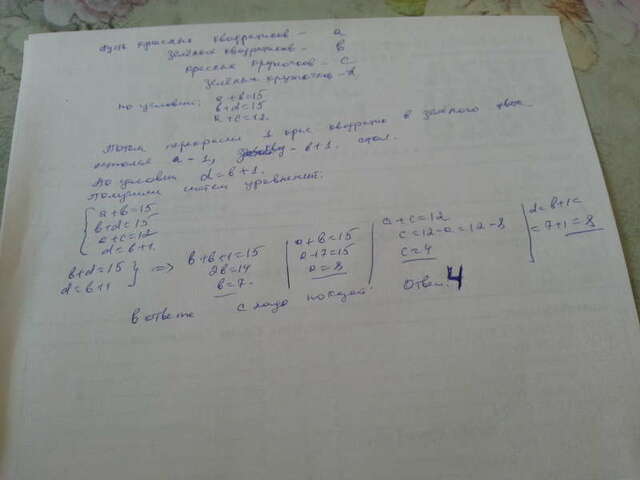 Пусть красных квадратиков - a
зелёных квадратиков - b
красных кружочков - c
зелёных кружочков - d
по условию: a+b=15
b+d=15
a+c=12
Потом перекрасил 1 крас квадратик в зелёного цвет
остался a-1, b+1. стал.
По условию d=b+1.
Получили систем уравнений:
a+b=15
b+d=15
a+c=12
d=b+1.
b+d=15
d=b+1 } => b+b+1=15
2b=14
b=7.
a+b=15
a+7=15
a=8
a+c=12
c=12-a=12-8
c=4
d=b+1=
=7+1=8
в ответе c надо
Ответ: 4